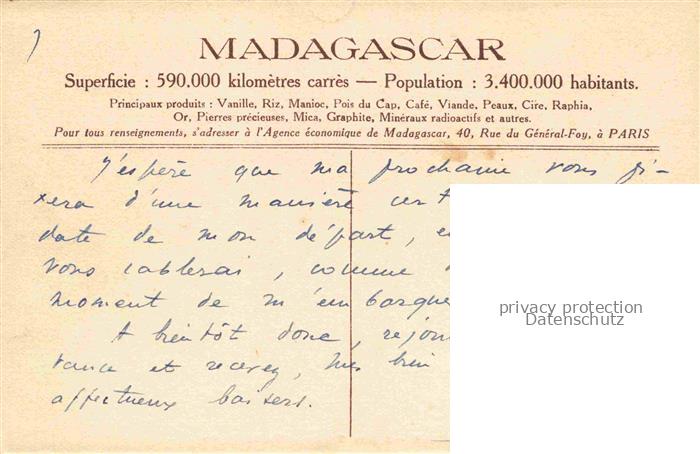 MADAGASCAR
Superficie : 590.000 kilomètres carrès — Population : 3.400.000 habitants.
Principaux produits : Vanille, Riz, Manioc, Pois du Cap, Café, Viande, Peaux, Cire, Raphia,
Or, Pierres précieuses, Mica, Graphite, Minéraux radioactifs et autres.
Pour tous renseignements, s'adresser à l'Agence économique de Madagascar, 40, Rue du Général-Foy, à PARIS
J'espère que ma prochaine vous fi-
xera d'une manière cert
date de mon départ, e
vous cablerai, comme
moment de m'embarque
A bientôt donc, réjou
vance et recevez, mes bien
affectueux baisers.
privacy protection
Datenschutz